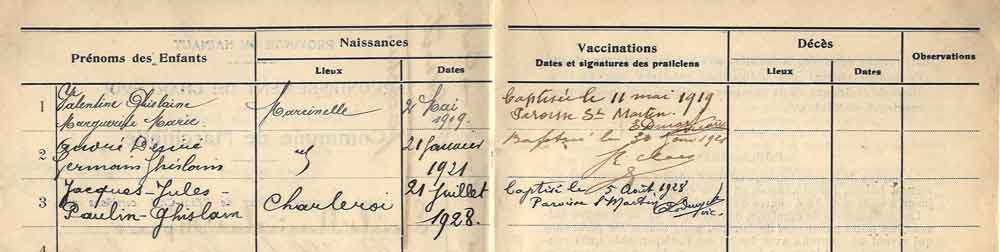 Prénoms des Enfants
Naissances
Lieux
Dates
Vaccinations
Dates et signatures des praticiens
Décès
Lieux
Dates
Observations
1
Valentine Ghislaine
Marguerite Marie
Marcinelle
2 Mai
1919.
Baptisée le 11 mai 1919
Paroisse St Martin.
2
André Désiré
Germain Ghislain
21 Janvier
1921
Baptisé le 30 Janv 1921
3
Jacques-Jules-
Paulin-Ghislain
Charleroi
21 Juillet
1928.
Baptisé le 5 Août 1928
Paroisse St Martin
vic.